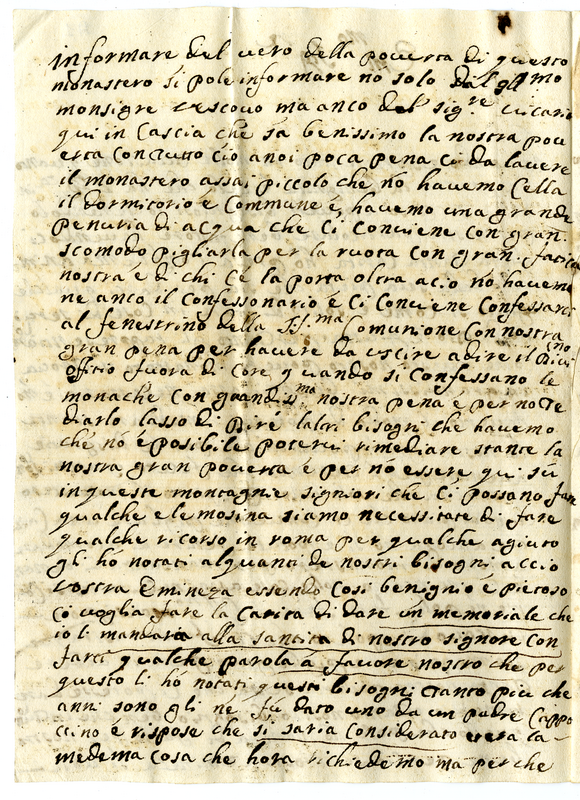 informare del vero della poverta di questo
monastero si pole informare no solo dal Ill.mo
monsigre vescovo ma anco del sigre vicario
qui in Cascia che sa benissimo la nostra pov
erta con tutto cio anoi poca pena ci da lavere
il monastero assai piccolo che no havemo Cella
il dormitorio e Commune é havemo una grande
penuria di acqua che Ci Conviene Con gran
scomodo pigliarla per la ruota con gran fatica
nostra é di chi Ce la porta oltra acio no havemo
ne anco il Confessonario é Ci Conviene Confessarci
al fenestrino della SS.ma Comunione Con nostra
gran pena per havere da uscire adire il Divino
offitio fuora di Core quando si Confessano le
monache Con grandiss.ma nostra pena é per no te
diarlo lasso di dire laltri bisogni che havemo
che no é posibile potervi rimediare stante la
nostra gran poverta é per no essere qui sú
in queste montagnie signiori che Ci possano fare
qualche elemosina siamo necessitate di fare
qualche ricorso in roma per qualche agiuto
gli hò notati alquanti de nostri bisogni accio
vostra Emineza essendo Cosi benignio é pietoso
Ci voglia fare la Carita di dare un memoriale che
io li mandarà alla santita di nostro signore Con
farci qualche parola a favore nostro che per
questo li hò notati questi bisogni tanto piu che
anni sono gli ne fu dato uno da un padre Cappu
ccino é rispose che si saria Considerato era la
medema Cosa che hora richiedemo ma perche